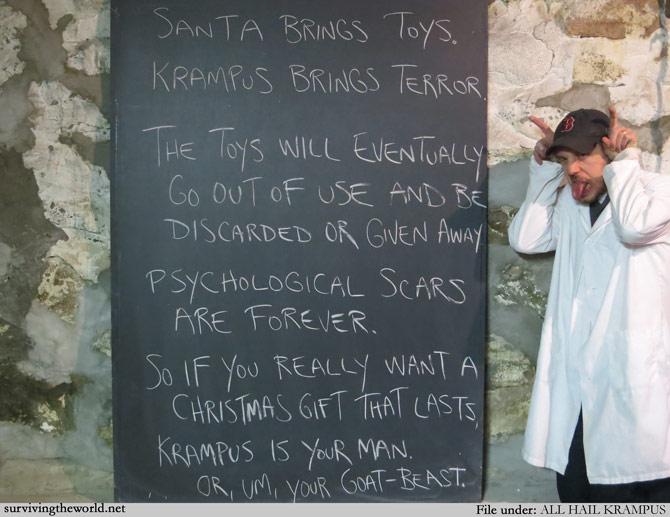 SANTA BRINGS TOYS.
KRAMPUS BRINGS TERROR.
THE TOYS WILL EVENTUALLY
GO OUT OF USE AND BE
DISCARDED OR GIVEN AWAY.
PSYCHOLOGICAL SCARS
ARE FOREVER.
SO IF YOU REALLY WANT A
CHRISTMAS GIFT THAT LASTS,
KRAMPUS IS YOUR MAN.
OR, UM, YOUR GOAT-BEAST.
B
survivingtheworld.net
File under: ALL HAIL KRAMPUS